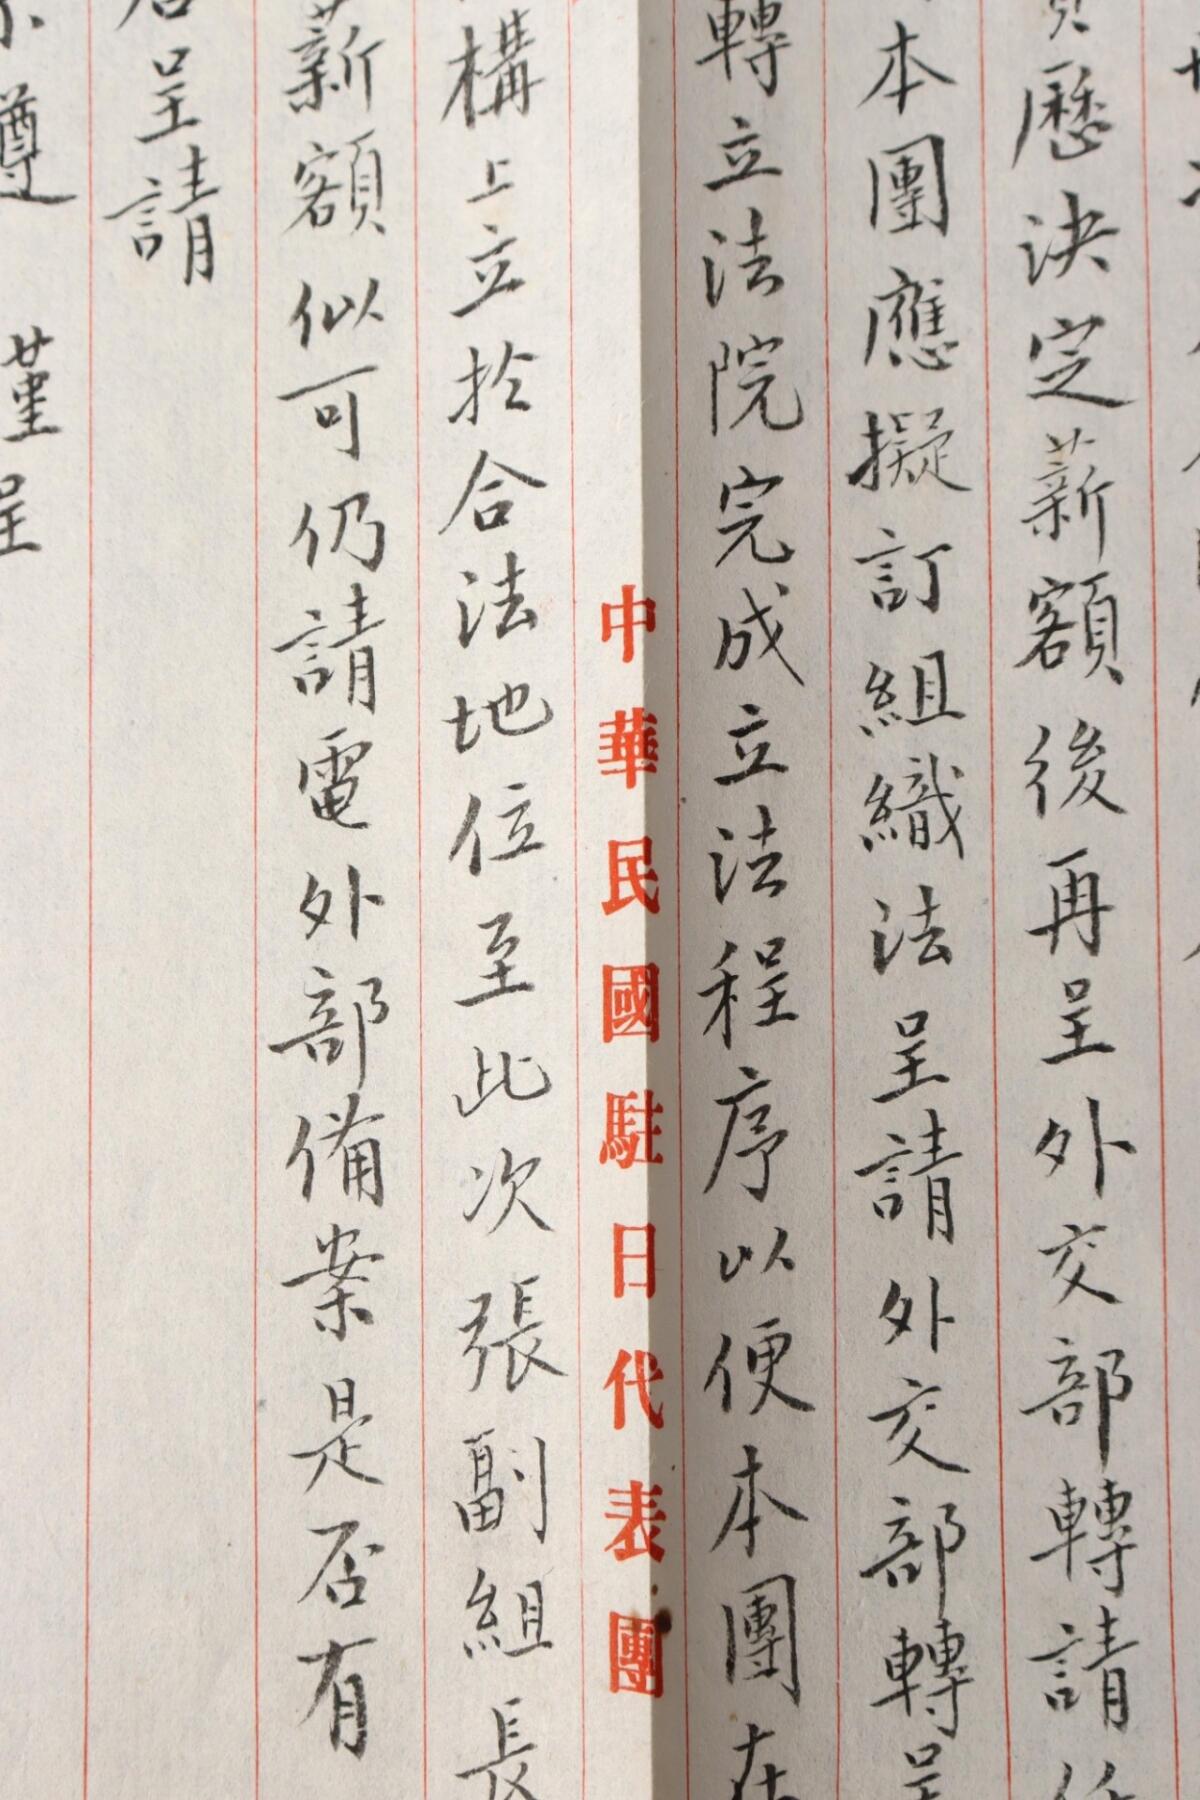 歷決定薪額後再呈外交部轉請
本團應擬訂組織法呈請外交部轉呈
轉立法院完成立法程序以便本團在
中華民國駐日代表團
構上立於合法地位至此次張副組長
薪額似可仍請電外部備案是否有
呈請
遵 謹呈